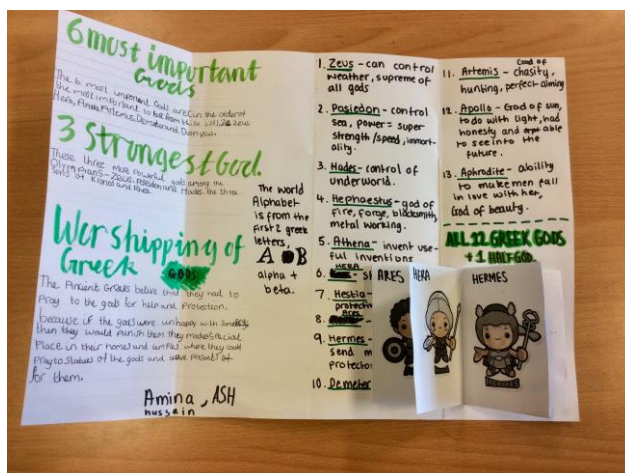 6 most important
Gods
The 6 most important Gods are (in the order of
the most important to
Hera, Artemis, Demeter and Dionysus.
3 Strongest God.
These three most Powerful gods among the
Olympians - Zeus, Poseidon and Hades the three
sons of Kronos and Rhea
Worshipping of
Greek GODS
The Ancient Greeks believe that they had to
Pray to the gods for help and Protection.
because if the gods were unhappy with
then they would punish them. They made special
Place in their homes and temples where they could
pray to statues of the gods and leave presents
for them.
Amina, ASH
hussain
The world
Alphabet
is from the
first 2 greek
letters,
A B
alpha +
beta.
1. Zeus - can control
weather, supreme of
all gods
2. Posiedon - control
sea, power = super
strength / speed, immort-
ality.
3. Hades - control of
underworld.
4. Hephaestus - god of
fire, forge, blacksmith,
metal working.
5. Athena - invent use-
ful inventions
6. HERA
7. Hestia -
protect
8. Ares
9. Hermes -
send m
protecto
10. Demeter
11. Artemis - God of chasity,
hunting, perfect aiming
12. Apollo - God of sun,
to do with light, had
honesty and able
to see into the
future.
13. Aphradite - ability
to make men fall
in love with her,
God of beauty.
ALL 12 GREEK GODS
+ 1 HALF GOD.
ARES
HERA
HERMES
HERMES